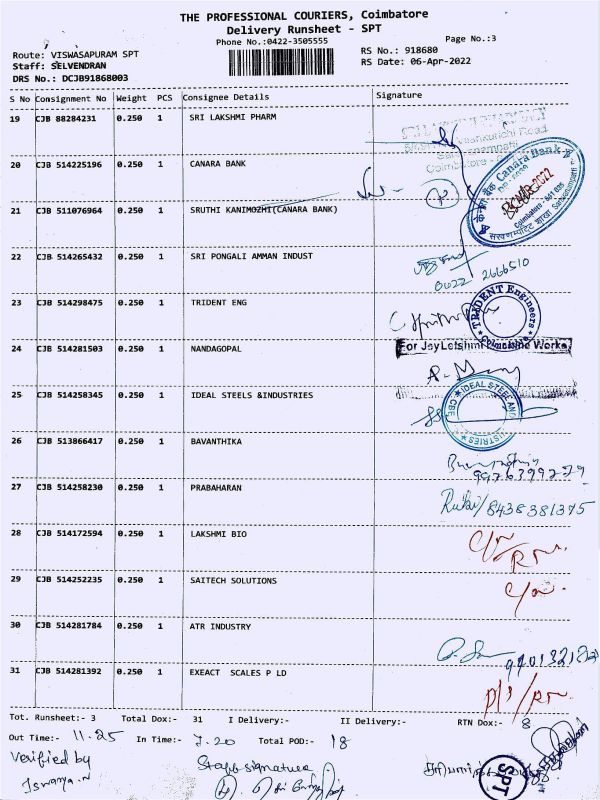 THE PROFESSIONAL COURIERS, Coimbatore
Delivery Runsheet - SPT
Phone No.:0422-3505555
Page No.:3
Route: VISWASAPURAM SPT
RS No.: 918680
Staff: SELVENDRAN
RS Date: 06-Apr-2022
DRS No.: DCJB91868003
S No Consignment No Weight PCS Consignee Details Signature
19 CJB 88284231 0.250 1 SRI LAKSHMI PHARM
20 CJB 514225196 0.250 1 CANARA BANK
Canara Bank
21 CJB 511076964 0.250 1 SRUTHI KANIMOZHI(CANARA BANK)
22 CJB 514265432 0.250 1 SRI PONGALI AMMAN INDUST
0422 2666510
23 CJB 514298475 0.250 1 TRIDENT ENG
TRIDENT Engineers
24 CJB 514281503 0.250 1 NANDAGOPAL
For JayLatshmi Machine Works
25 CJB 514258345 0.250 1 IDEAL STEELS &INDUSTRIES
IDEAL STEEL AND
26 CJB 513866417 0.250 1 BAVANTHIKA
27 CJB 514258230 0.250 1 PRABAHARAN
8438381375
28 CJB 514172594 0.250 1 LAKSHMI BIO
29 CJB 514252235 0.250 1 SAITECH SOLUTIONS
30 CJB 514281784 0.250 1 ATR INDUSTRY
31 CJB 514281392 0.250 1 EXEACT SCALES P LD
Tot. Runsheet:- 3 Total Dox:- 31 I Delivery:- II Delivery:- RTN Dox:- 8
Out Time:- 11.25 In Time:- 7.20 Total POD:- 18
Verified by
Iswarya.N
Staff signature
SPT